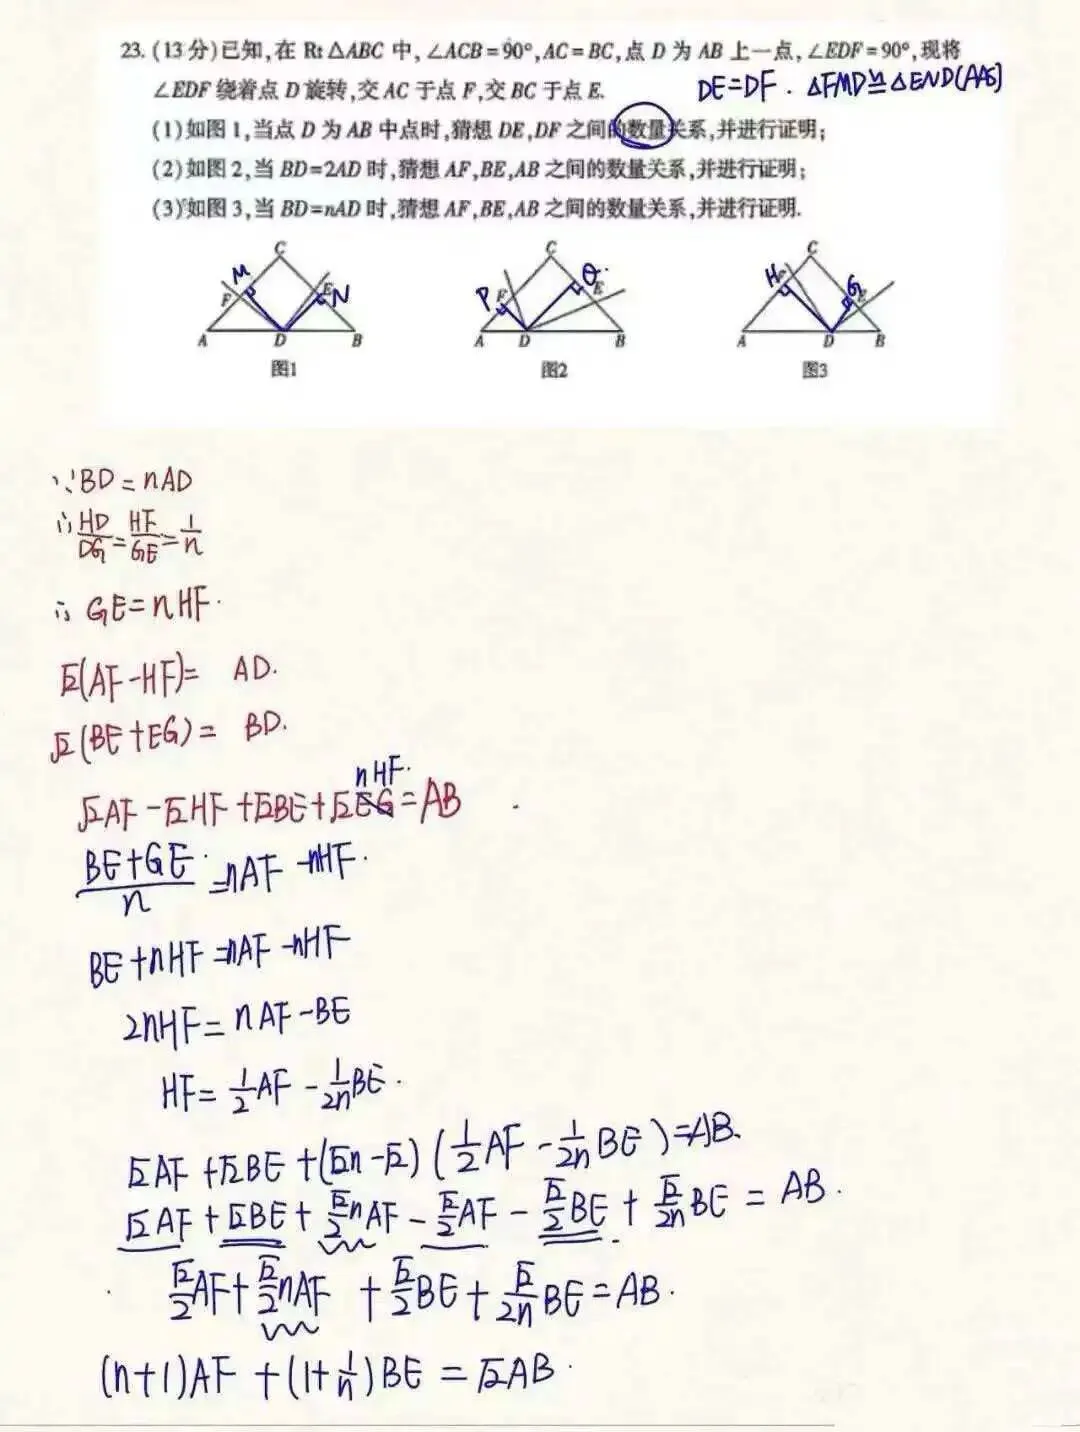 23. (13分)已知,在 Rt△ABC 中,∠ACB=90°,AC=BC,点 D 为 AB 上一点,∠EDF=90°,现将
∠EDF 绕着点 D 旋转,交 AC 于点 F,交 BC 于点 E.
DE=DF. △FMD≌△END(AAS)
(1)如图1,当点 D 为 AB 中点时,猜想 DE,DF 之间的数量关系,并进行证明;
(2)如图2,当 BD=2AD 时,猜想 AF,BE,AB 之间的数量关系,并进行证明;
(3)如图3,当 BD=nAD 时,猜想 AF,BE,AB 之间的数量关系,并进行证明.
C M F E N A D B
图1
C P F Q E A D B
图2
C H G E A D B
图3
∵BD=nAD
∴HD/DG=HF/GE=1/n
∴GE=nHF.
√2(AF-HF)= AD.
√2(BE+EG)= BD.
nHF.
√2AF-√2HF+√2BE+√2EG=AB
(BE+GE)/n=nAF-nHF.
BE+nHF=nAF-nHF
2nHF=nAF-BE
HF=1/2AF-1/2nBE.
√2AF+√2BE+(√2n-√2)(1/2AF-1/2nBE)=AB.
√2AF+√2BE+√2/2nAF-√2/2AF-√2/2BE+√2/2nBE=AB.
√2/2AF+√2/2nAF+√2/2BE+√2/2nBE=AB.
(n+1)AF+(1+1/n)BE=√2AB.